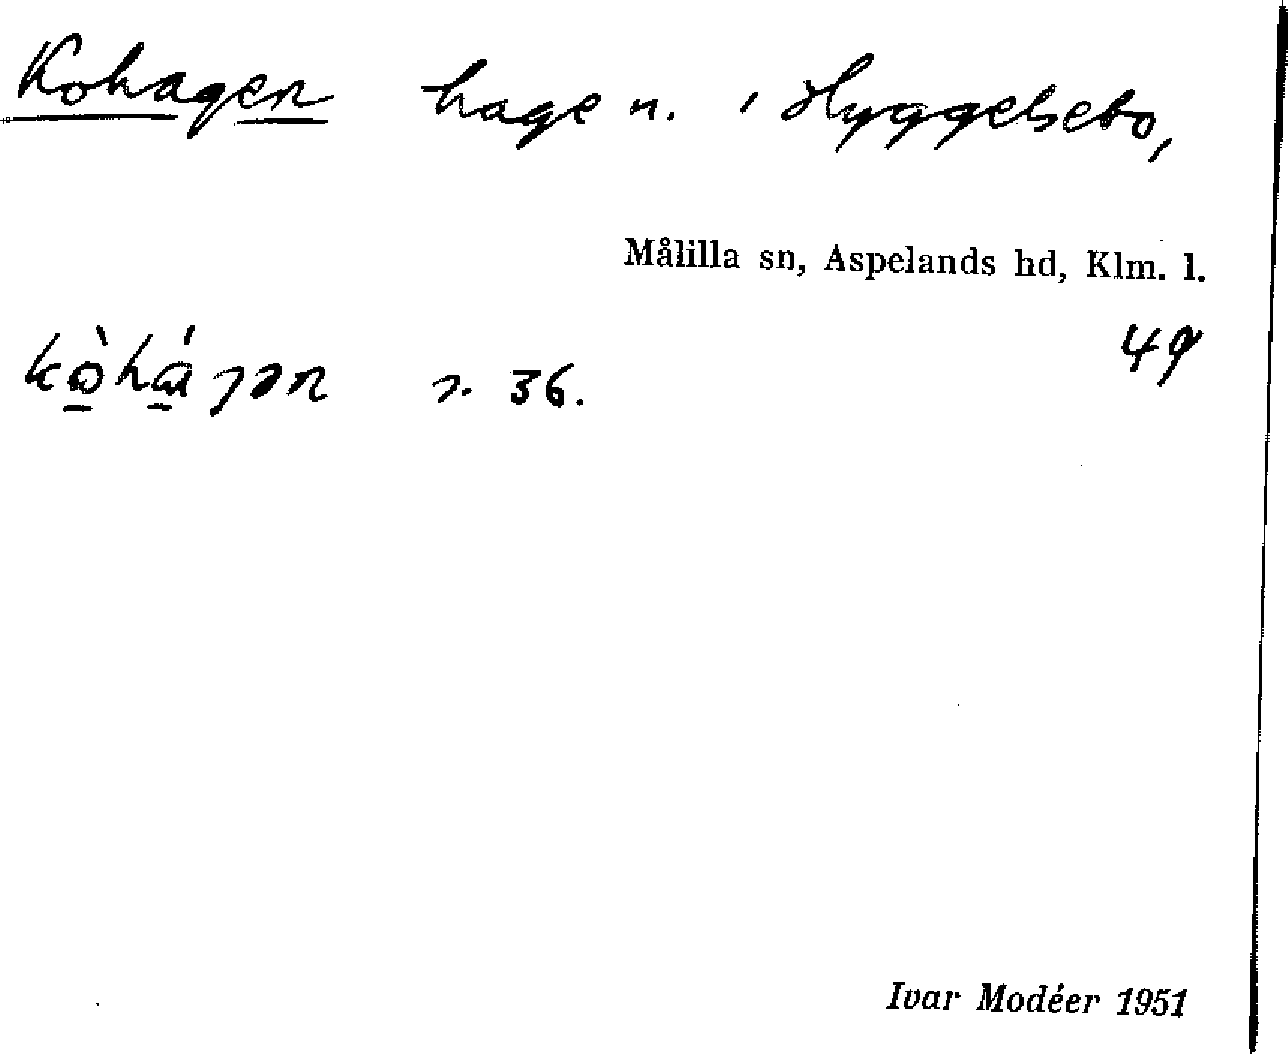 Kohagen hage n. i Hyggelsebo,
Målilla sn, Aspelands hd, Klm. l.
49
kò̱há̱gən s. 36.
Ivar Modéer 1951